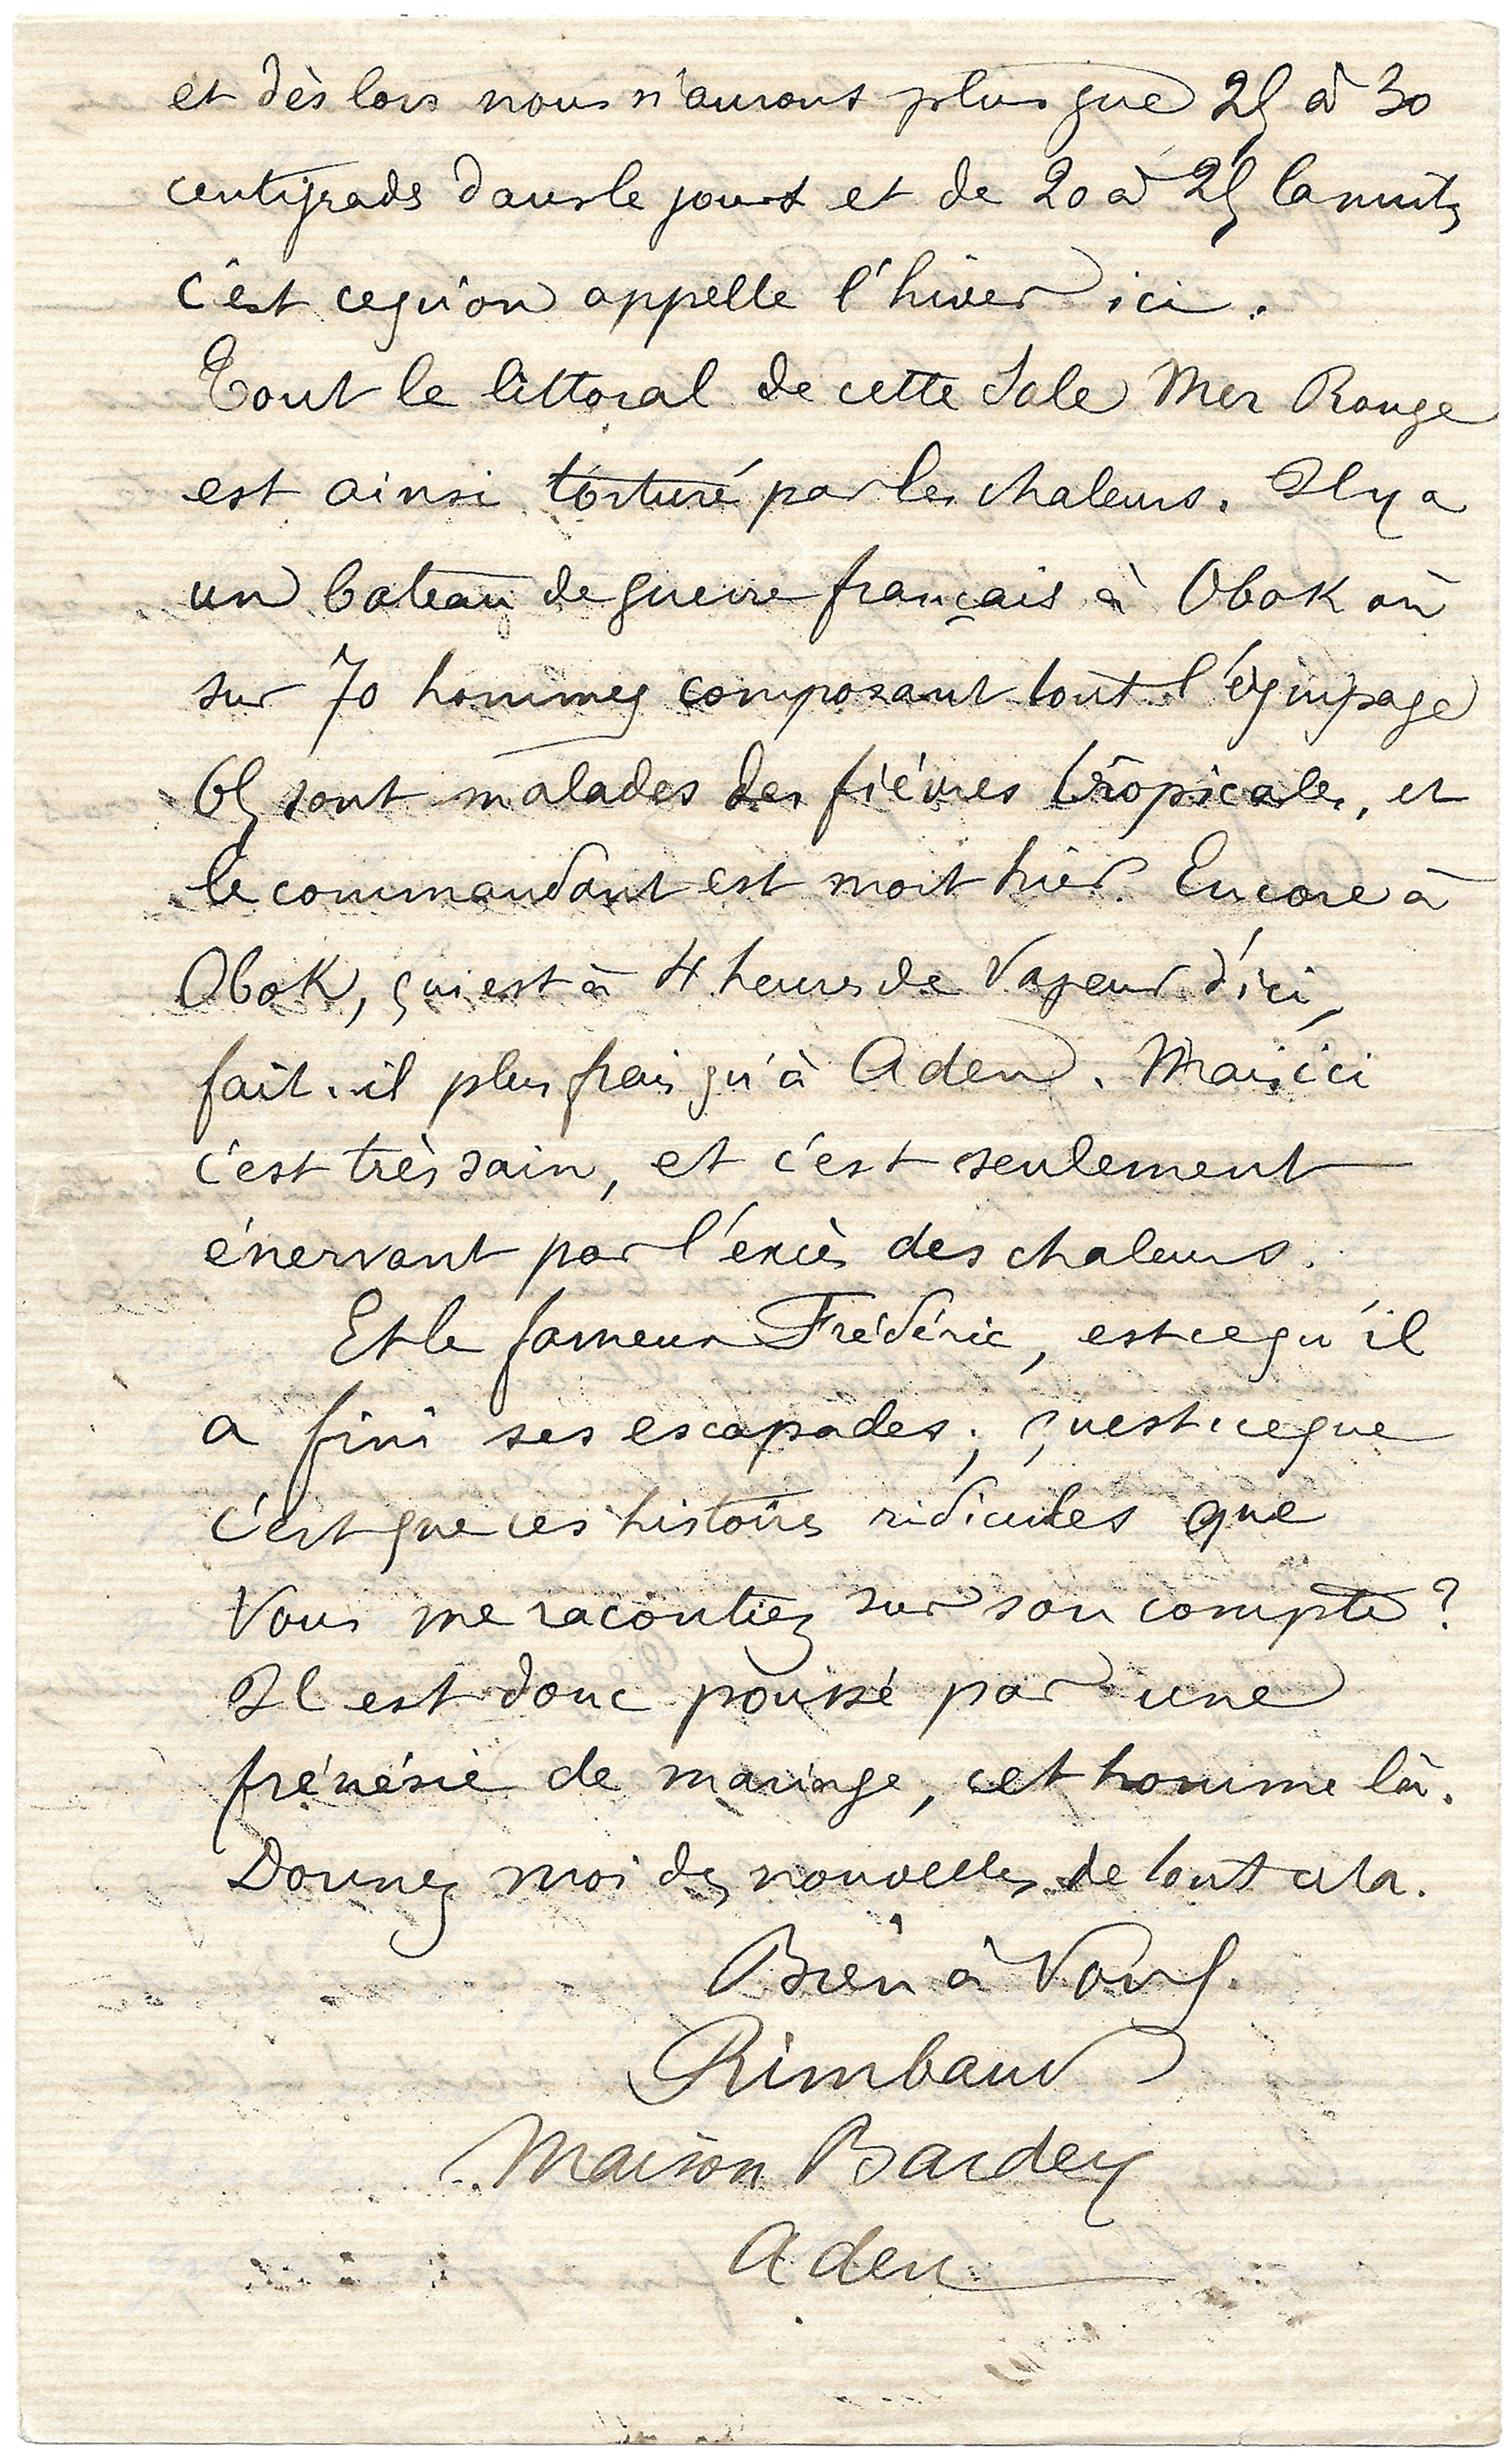 et dès lors nous n'aurons plus que 25 à 30
centigrads dans le jours et de 20 à 25 la nuit,
c'est ce qu'on appelle l'hiver ici.
Tout le littoral de cette sale Mer Rouge
est ainsi torturé par les chaleurs. Il y a
un bateau de guerre français à Obok où
sur 70 hommes composant tout l'équipage
65 sont malades des fièvres tropicales, et
le commandant est mort hier. Encore à
Obok, qui est à 4 heures de vapeur d'ici,
fait-il plus frais qu'à Aden. Mais ici
c'est très sain, et c'est seulement
énervant par l'excès des chaleurs.
Et le fameux Frédéric, est ce qu'il
a fini ses escapades ; qu'est ce que
c'est que ces histoires ridicules que
vous me racontiez sur son compte ?
Il est donc poussé par une
frénésie de mariage, cet homme là.
Donnez moi des nouvelles de tout cela.
Bien à Vous.
Rimbaud
Maison Bardey
Aden